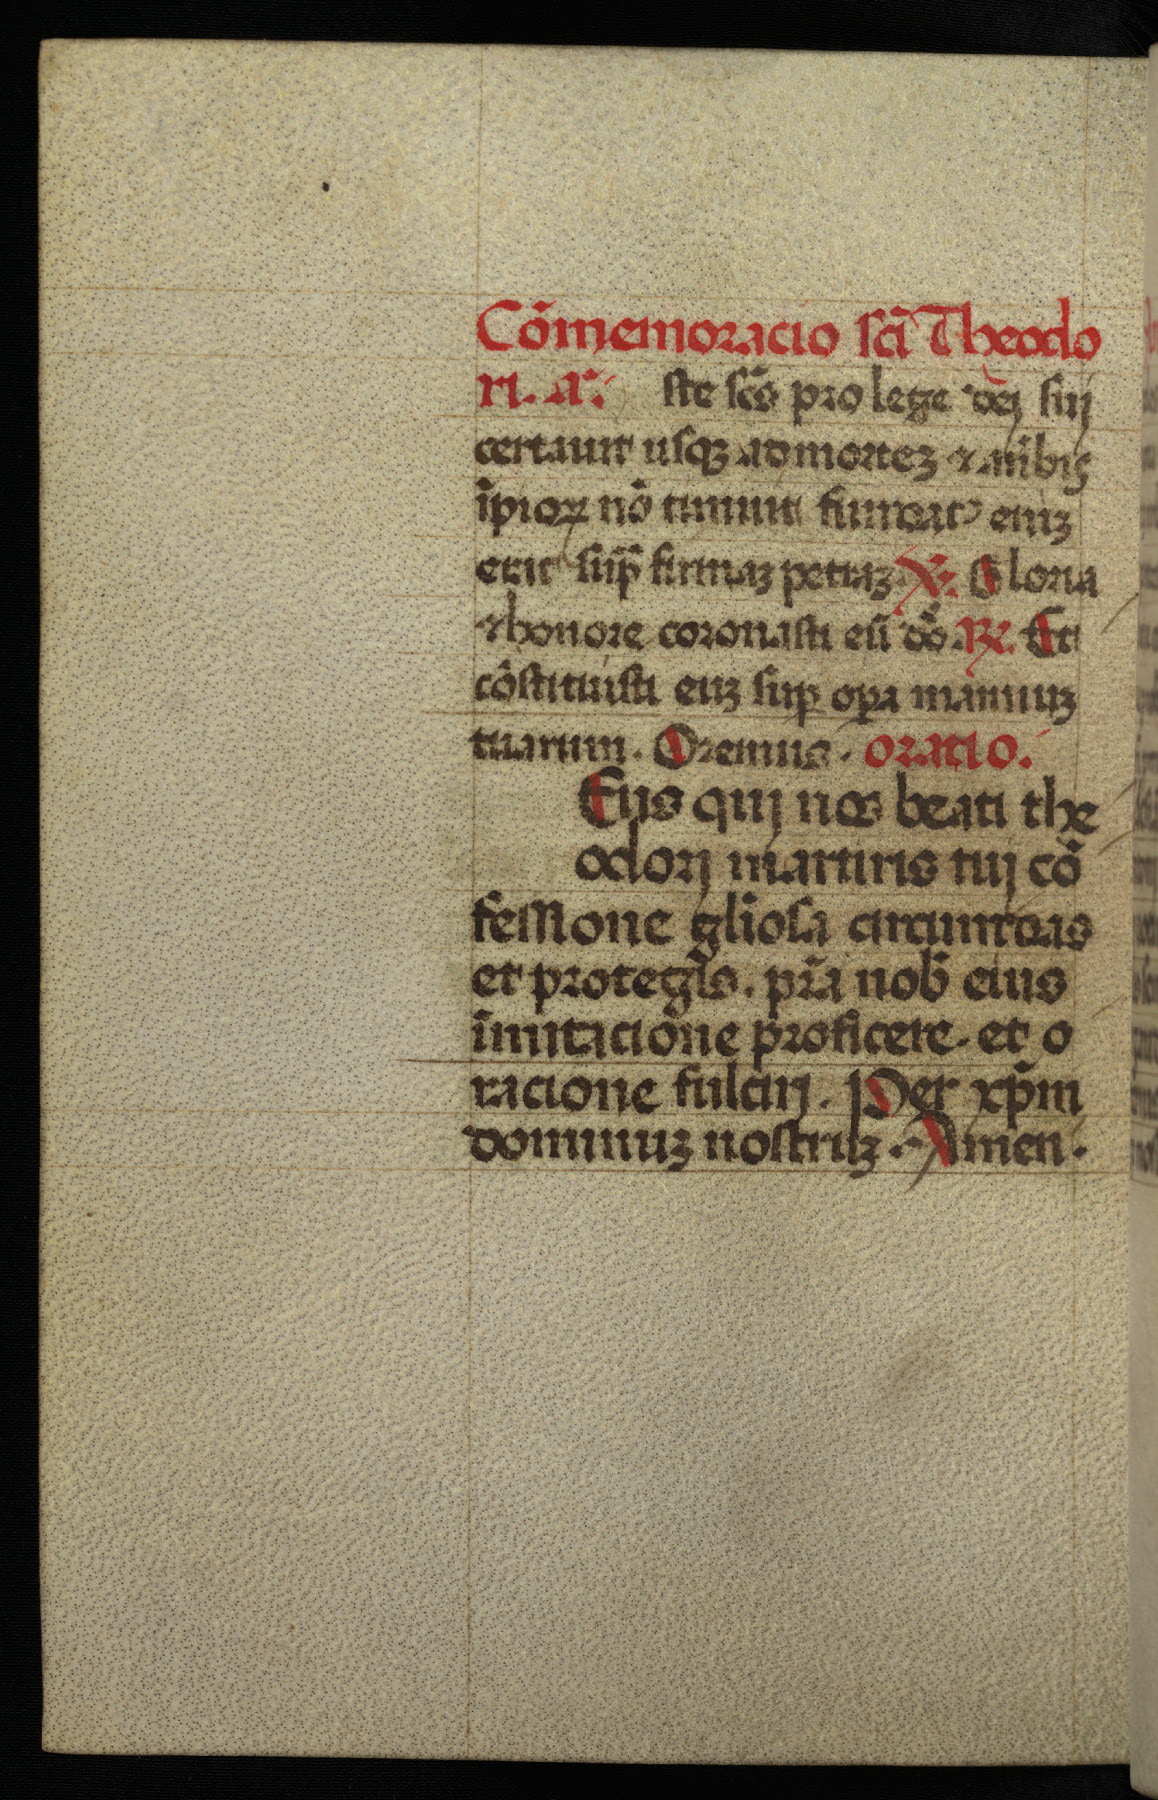 Cõmemoracio sci̅ Theodo
ri. a̅. ste sc̅s pro lege dei sui
certauit usqꝫ ad morteꝫ ⁊ a u̅bis
i̅pioꝝ nõ timuit fundatꝰ eniꝫ
erat sup̅ firmaꝫ petraꝫ. V̸. Gloria
⁊ honore coronasti eu̅ dõ. R̸. Et
cõstituisti euꝫ sup̱ oꝑa manuuꝫ
tuarum. Oremus. oratio.
Eus qui nos beati the
odori martiris tui cõ
fessione gli̅osa circumdas
et proteg̅is. p̅ra nob̅ eius
imitaciõne proficere. et o
racione fulciri. Per xp̅m
dominuꝫ nostruꝫ. Amen.